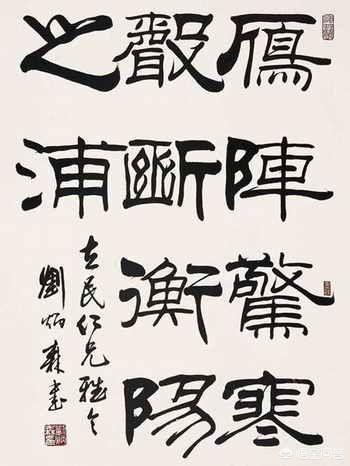 鴈陣驚寒
聲斷衡陽
之浦
民仁兄雅
劉炳森書
悟空问答